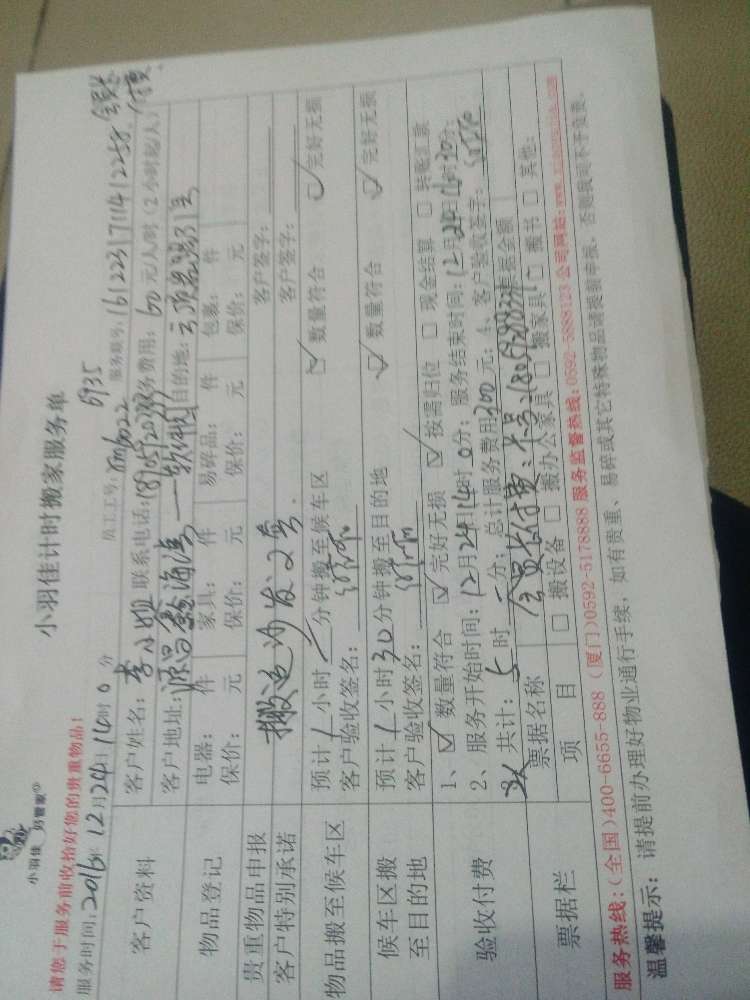 小羽佳 好管家
小羽佳计时搬家服务单
6935
请您于服务前收拾好您的贵重物品!
服务时间:2016年12月24日14时0分 员工工号:xm6022 服务账号:161223171141225
客户资料 客户姓名:李小姐 联系电话: 服务费用:60元/人/时(2小时起/人)
客户地址: 软件园 目的地:
物品登记 电器: 件 家具: 件 易碎品: 件 包裹: 件
保价: 元 保价: 元 保价: 元 保价: 元
贵重物品申报 客户签字:
客户特别承诺 搬运沙发2套 客户签字:
物品搬至候车区 预计1小时 分钟搬至候车区 数量符合 完好无损
客户验收签名:
候车区搬至目的地 预计1小时30分钟搬至目的地 数量符合 完好无损
客户验收签名:
验收付费 1、数量符合 完好无损 按需归位 现金结算 转账汇款
2、服务开始时间:12月24日14时0分;服务结束时间:12月24日16时30分;
3、共计:5时 分;总计服务费用300元;4、客户验收签字:
票据栏 票据名称 会员卡付费:卡号: 票据金额
项目 搬设备 搬办公家具 搬家具 搬书 其他:
服务热线:(全国)400-6655-888 (厦门)0592-5178888 服务监督热线:0592-5888123 公司网站:
温馨提示: 请提前办理好物业通行手续,如有贵重、易碎或其它特殊物品请提前申报,否则我司不予负责。